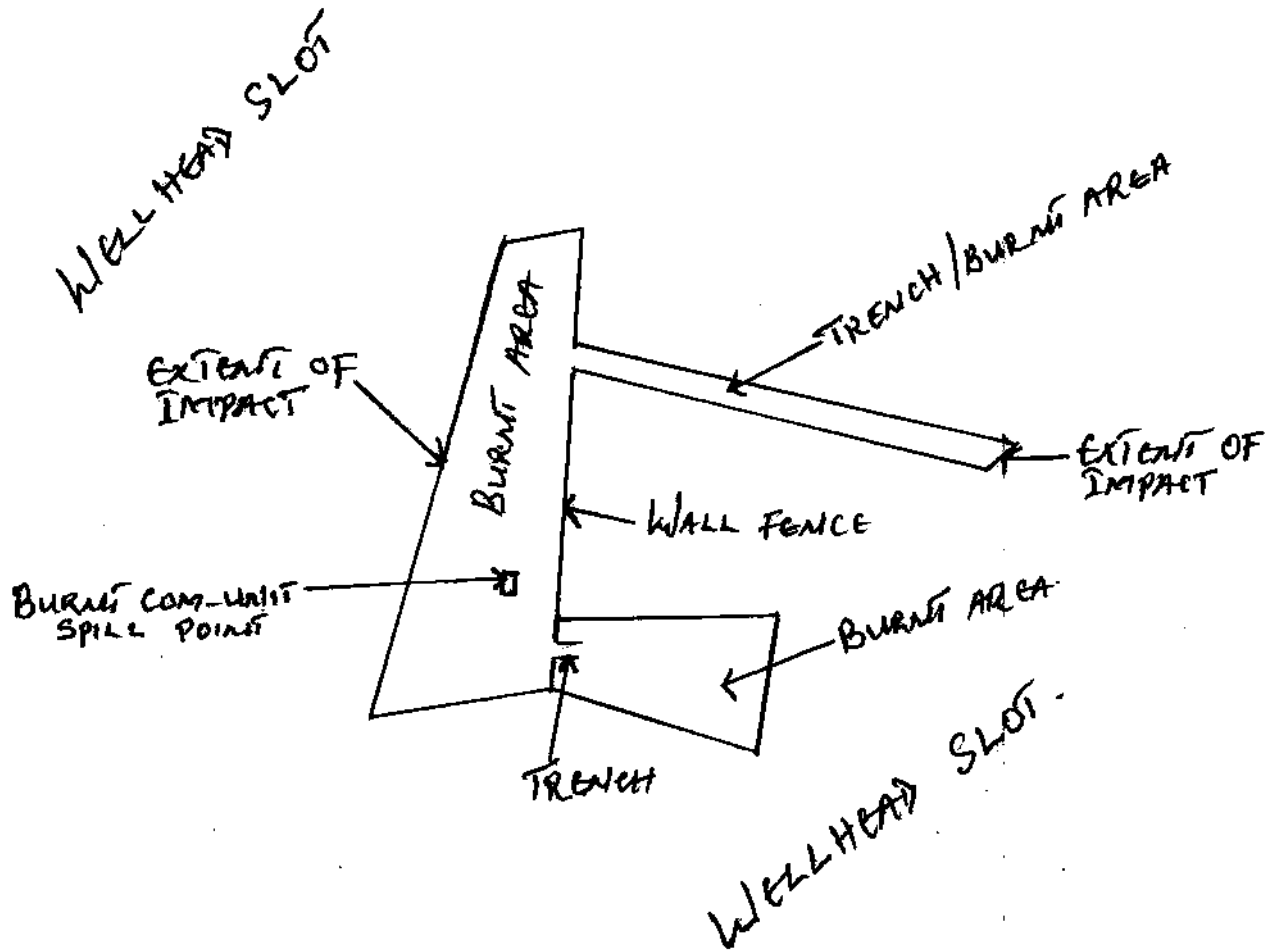 WELL HEAD SLOT
TRENCH/BURNT AREA
EXTENT OF
IMPACT
BURNT AREA
EXTENT OF
IMPACT
WALL FENCE
BURNT COM-UNIT
SPILL POINT
BURNT AREA
TRENCH
WELLHEAD SLOT.